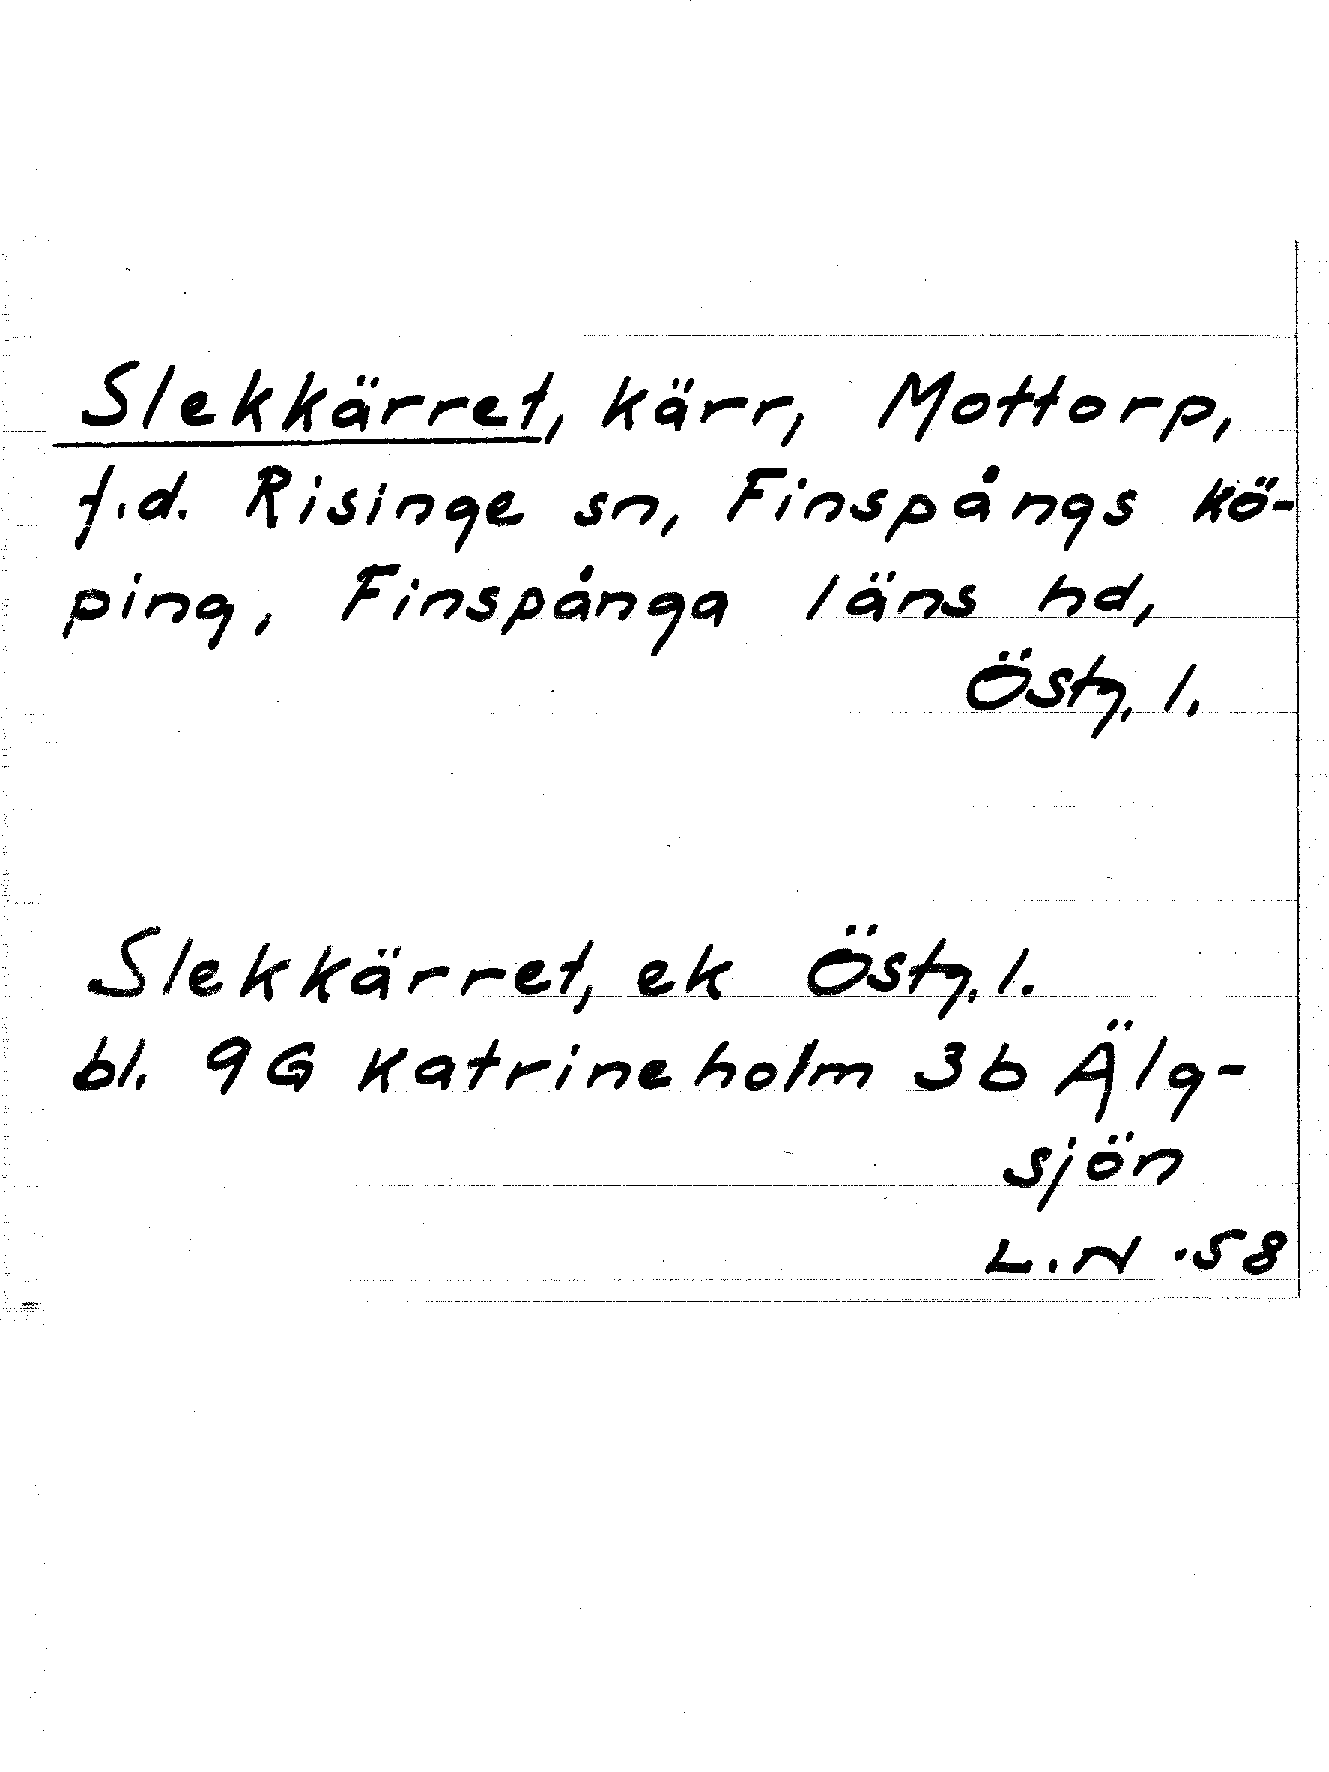 Slekkärret, kärr, Mottorp,
f.d. Risinge sn, Finspångs kö-
ping, Finspånga läns hd,
Östg. l.
Slekkärret, ek Östg. l.
bl. 9G Katrineholm 3b Älg-
sjön
L.N .58